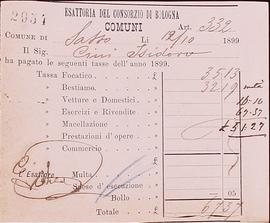 2957
ESATTORIA DEL CONSORZIO DI BOLOGNA
COMUNI
Art. 332
COMUNE DI Sasso Li 12/10 1899
Il Sig. Cini Isidoro
ha pagato le seguenti tasse dell'anno 1899.
Tassa Focatico. 35 15
» Bestiame. 32 19 metà
» Vetture e Domestici 16.10
» Esercizi e Rivendite 67.37
» Macellazione £ 51.27
» Prestazioni d'opere
» Commercio
L'Esattore Multa
Spese d'esecuzione
Bollo 05
Totale 67 37